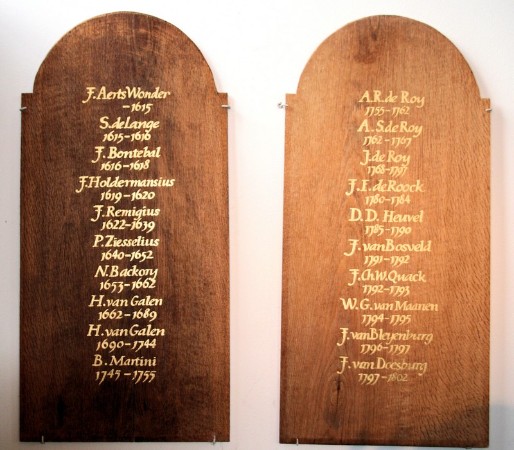 F. Aerts Wonder
-1615
S. de Lange
1615-1616
J. Bontebal
1616-1618
F. Holdermansius
1619-1620
J. Remigius
1622-1639
P. Ziesselius
1640-1652
N. Backory
1653-1662
H. van Galen
1662-1689
H. van Galen
1690-1744
B. Martini
1745-1755
A. R. de Roy
1755-1762
A. S. de Roy
1762-1767
J. de Roy
1768-1797
J. F. de Roock
1780-1784
D. D. Heuvel
1785-1790
J. van Bosveld
1791-1792
J. Ch. W. Quack
1792-1793
W. G. van Maanen
1794-1795
J. van Bleyenburg
1796-1797
J. van Doesburg
1797-1802